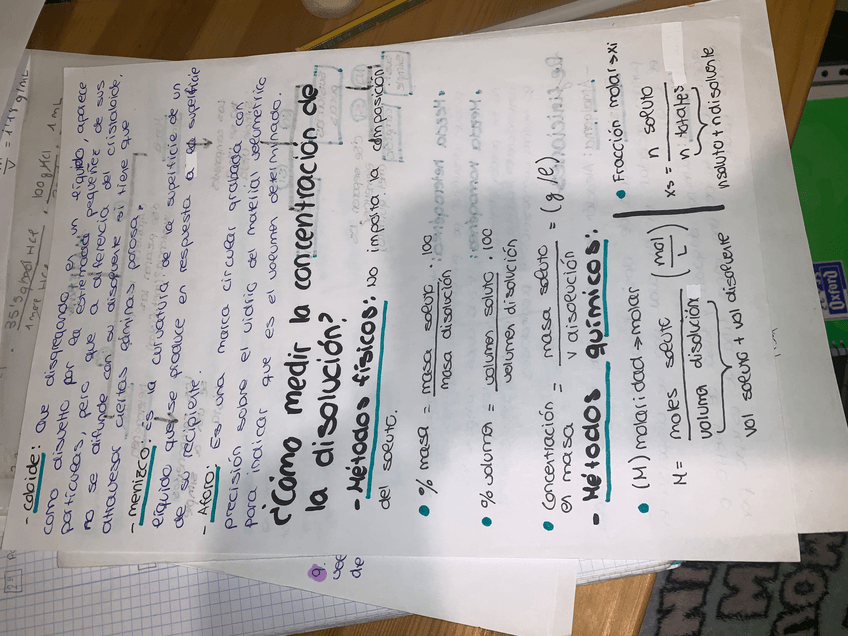 - coloide: Que disgregando en un líquido, aparece
como disuelto por la extremada pequeñez de sus
partículas, pero que a diferencia del cristaloide,
no se difunde con su disolvente si tiene que
atravesar ciertas láminas porosa.
- menizco: Es la curvatura de la superficie de un
líquido que se produce en respuesta a la superficie
de su recipiente.
- Aforo: Es una marca circular grabada con
precisión sobre el vidrio del material volumétrico
para indicar que es el volumen determinado.
¿Cómo medir la concentración de
la disolución?
- Métodos físicos: No importa la composición
del soluto.
• % masa = masa soluto / masa disolución . 100
• % volumen = volumen soluto / volumen disolución . 100
• Concentración en masa = masa soluto / v disolución = (g/l)
- Métodos químicos:
• (M) molaridad → molar
M = moles soluto / volumen disolución (mol / L)
vol soluto + vol disolvente
• Fracción molar → xi
xs = n soluto / n totales
nsoluto + ndisolvente
35'3g
100g HCl
1 mL
9.
de
Oxford